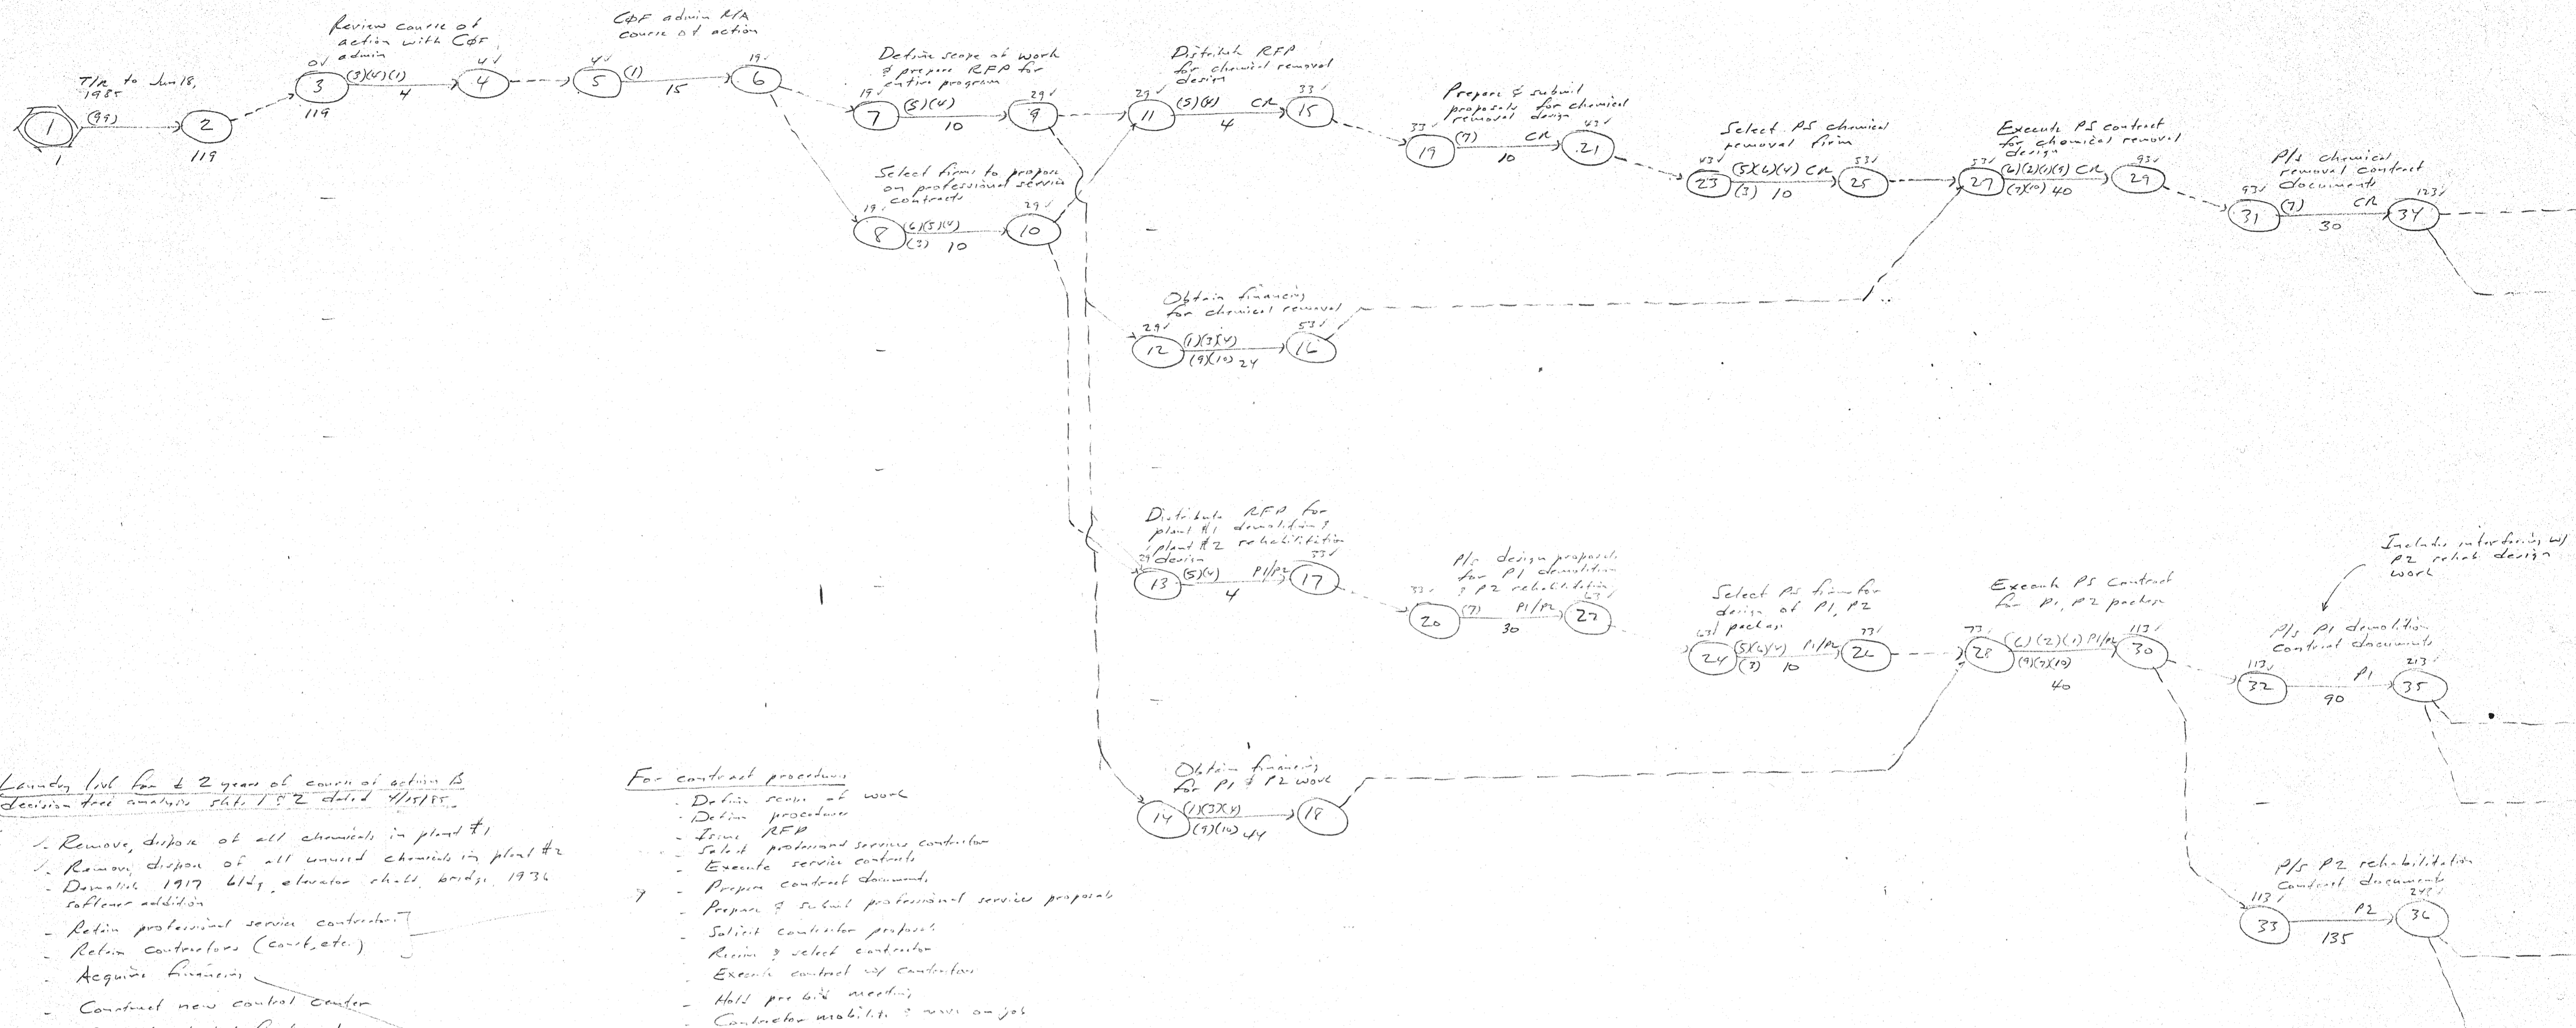 T/R to Jun 18,
1985
(99)
1
2
1
119
Review course of
action with CØF
admin
0✓
3
(3)(4)(1)
4
119
4✓
4
CØF admin R/A
course of action
4✓
5
(1)
15
19✓
6
Define scope of work
& prepare RFP for
entire program
19✓
7
(5)(4)
10
29✓
9
Select firms to propose
on professional service
contracts
19✓
8
(6)(5)(4)
(3) 10
29✓
10
Distribute RFP
for chemical removal
design
29✓
11
(5)(4) CR
4
33✓
15
Prepare & submit
proposals for chemical
removal design
33✓
19
(7) CR
10
43✓
21
Select PS chemical
removal firm
43✓
23
(5)(6)(4) CR
(3) 10
53✓
25
Execute PS contract
for chemical removal
design
53✓
27
(6)(2)(1)(9) CR
(7)(10) 40
93✓
29
P/s chemical
removal contract
documents
93✓
31
(7) CR
30
123✓
34
Obtain financing
for chemical removal
29✓
12
(1)(3)(4)
(9)(10) 24
53✓
16
Distribute RFP for
plant #1 demolition &
plant #2 rehabilitation
design
29✓
13
(5)(4) P1/P2
4
33✓
17
P/s design proposals
for P1 demolition
& P2 rehabilitation
33✓
20
(7) P1/P2
30
63✓
22
Select PS firm for
design of P1, P2
package
63✓
24
(5)(6)(4) P1/P2
(3) 10
73✓
26
Execute PS Contract
for P1, P2 package
73✓
28
(6)(2)(1) P1/P2
(9)(7)(10)
40
113✓
30
Includes interfacing w/
P2 rehab design
work
P/s P1 demolition
contract documents
113✓
32
P1
90
213✓
35
Obtain financing
for P1 & P2 work
14
(1)(3)(4)
(9)(10) 44
18
P/s P2 rehabilitation
contract documents
113✓
33
P2
135
36
Laundry list for ± 2 years of course of action B
decision tree analysis shts 1 & 2 dated 4/15/85
✓- Remove, dispose of all chemicals in plant #1
✓- Remove, dispose of all unused chemicals in plant #2
- Demolish 1917 bldg, elevator shaft, bridge, 1936
softener addition
- Retain professional service contractors
- Retain contractors (const, etc.)
- Acquire financing
- Construct new control center
For contract procedures
- Define scope of work
- Define procedures
- Issue RFP
- Select professional services contractor
- Execute service contracts
- Prepare contract documents
- Prepare & submit professional services proposals
- Solicit contractor proposals
- Review & select contractor
- Execute contract w/ contractors
- Hold pre bid meeting
- Contractor mobilize & move on job